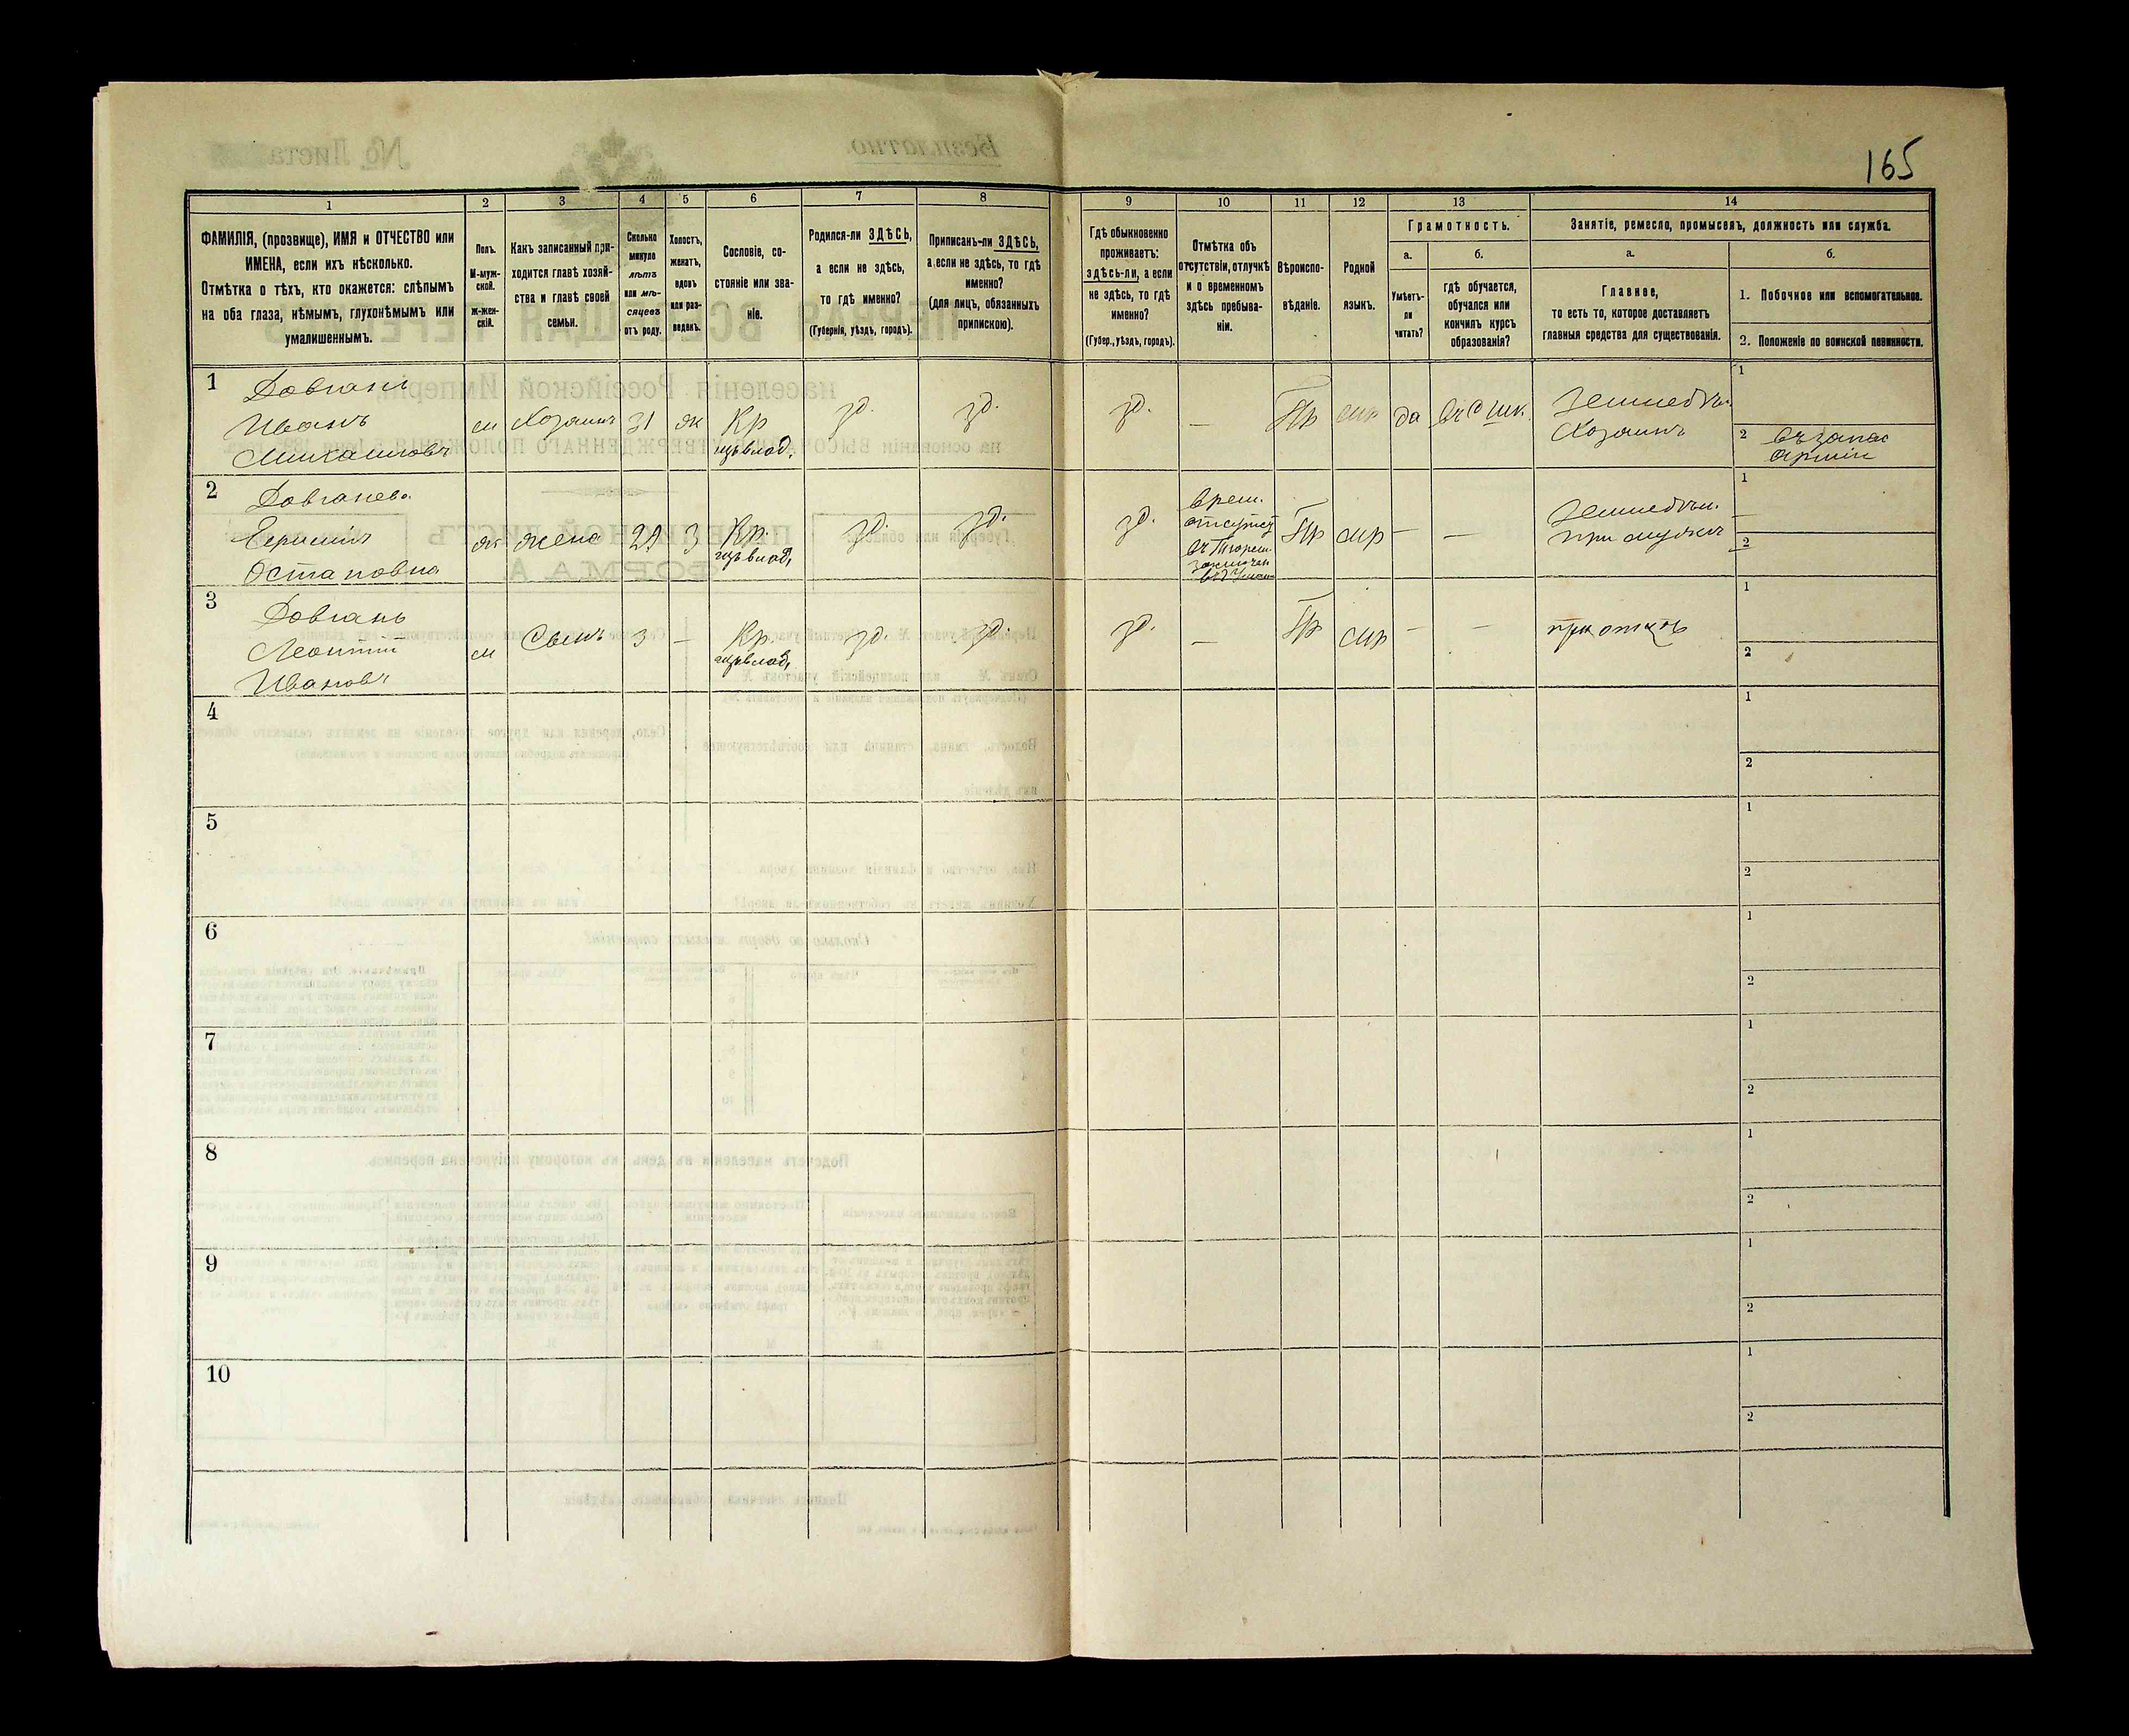 165
1
2
3
4
5
6
7
8
9
10
11
12
13
14
ФАМИЛІЯ, (прозвище), ИМЯ и ОТЧЕСТВО или
ИМЕНА, если ихъ нѣсколько.
Отмѣтка о тѣхъ, кто окажется: слѣпымъ
на оба глаза, нѣмымъ, глухонѣмымъ или
умалишеннымъ.
Полъ.
М-муж-
ской.
ж-жен-
скій.
Какъ записанный при-
ходится главѣ хозяй-
ства и главѣ своей
семьи.
Сколько
минуло
лѣтъ
или мѣ-
сяцевъ
отъ роду.
Холостъ,
женатъ,
вдовъ
или раз-
веденъ.
Сословіе, со-
стояніе или зва-
ніе.
Родился-ли ЗДѢСЬ,
а если не здѣсь,
то гдѣ именно?
(Губернія, уѣздъ, городъ).
Приписанъ-ли ЗДѢСЬ,
а если не здѣсь, то гдѣ
именно?
(для лицъ, обязанныхъ
припискою).
Гдѣ обыкновенно
проживаетъ:
здѣсь-ли, а если
не здѣсь, то гдѣ
именно?
(Губер., уѣздъ, городъ).
Отмѣтка объ
отсутствіи, отлучкѣ
и о временномъ
здѣсь пребыва-
ніи.
Вѣроиспо-
вѣданіе.
Родной
языкъ.
Грамотность.
а.
Умѣетъ-
ли
читать?
б.
гдѣ обучается,
обучался или
кончилъ курсъ
образованія?
Занятіе, ремесло, промыселъ, должность или служба.
а.
Главное,
то есть то, которое доставляетъ
главныя средства для существованія.
б.
1. Побочное или вспомогательное.
2. Положеніе по воинской повинности.
1
Довгань
Иванъ
Михаиловъ
м
Хозяинъ
31
ж
Кр
зд.
зд.
зд.
—
Пр
мр
да
шк.
Земледѣл.
Хозяинъ
1
2
въ запасѣ
арміи
2
Довганева
Остаповна
ж
жена
29
З
Кр.
зд.
зд.
зд.
врем.
отсутст
въ Тюрем.
Пр
мр
—
—
Земледѣл.
при мужѣ
1
2
3
Довгань
Леонтій
Ивановъ
м
Сынъ
3
—
Кр.
зд.
зд.
зд.
—
Пр
мр
—
—
при отцѣ
1
2
4
1
2
5
1
2
6
1
2
7
1
2
8
1
2
9
1
2
10
1
2